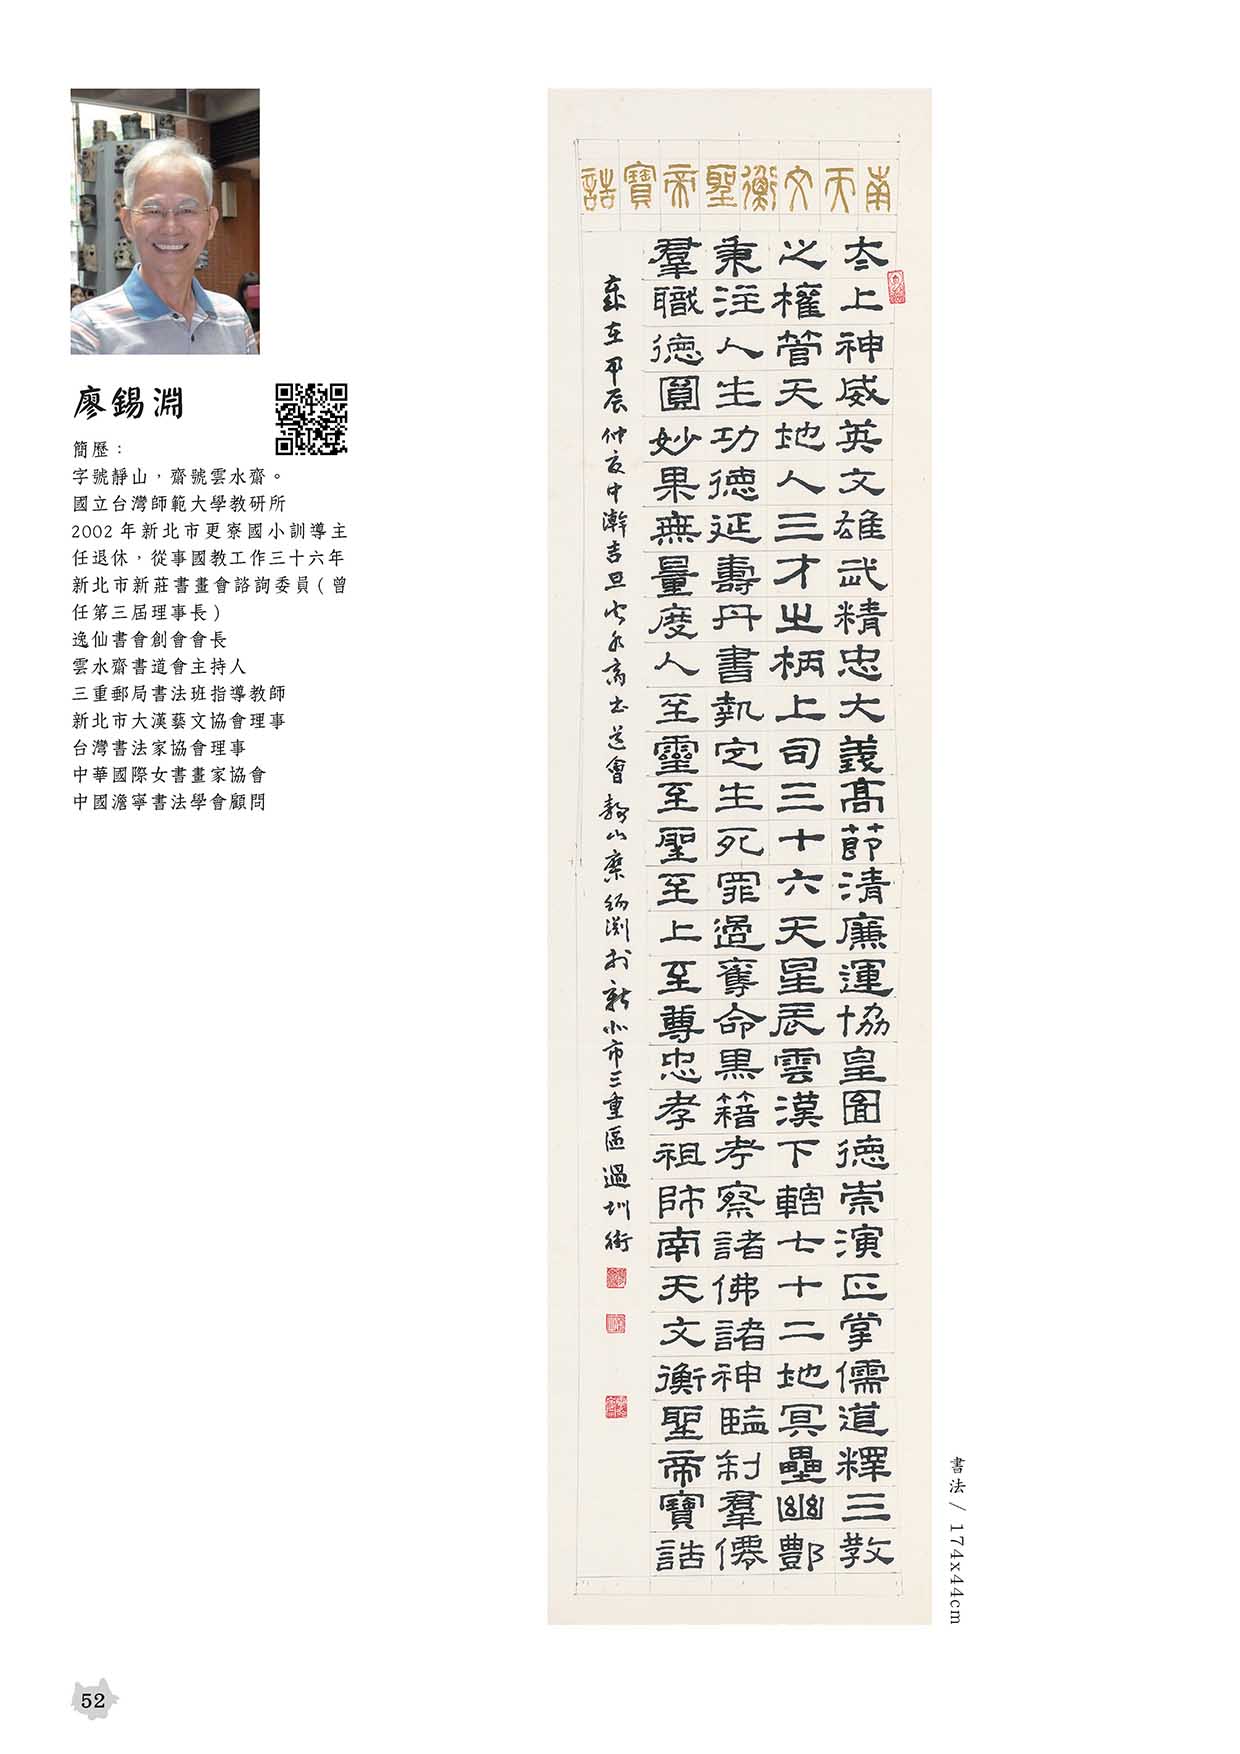 廖錫淵
簡歷：
字號靜山，齋號雲水齋。
國立台灣師範大學教研所
2002 年新北市更寮國小訓導主
任退休，從事國教工作三十六年
新北市新莊書畫會諮詢委員（曾
任第三屆理事長）
逸仙書會創會會長
雲水齋書道會主持人
三重郵局書法班指導教師
新北市大漢藝文協會理事
台灣書法家協會理事
中華國際女書畫家協會
中國澹寧書法學會顧問
南天文衡聖帝寶誥
太上神威英文雄武精忠大義高節清廉運協皇圖德崇演正掌儒道釋三教
之權管天地人三才之柄上司三十六天星辰雲漢下轄七十二地冥壘幽酆
秉注人生功德延壽丹書執定生死罪過奪命黑籍考察諸佛諸神監制羣僊
羣職德圓妙果無量度人至靈至聖至上至尊忠孝祖師南天文衡聖帝寶誥
歲在甲辰仲夏中澣吉旦雲水齋書道會靜山廖錫淵於新北市三重區過圳街
書法 / 174x44cm
52